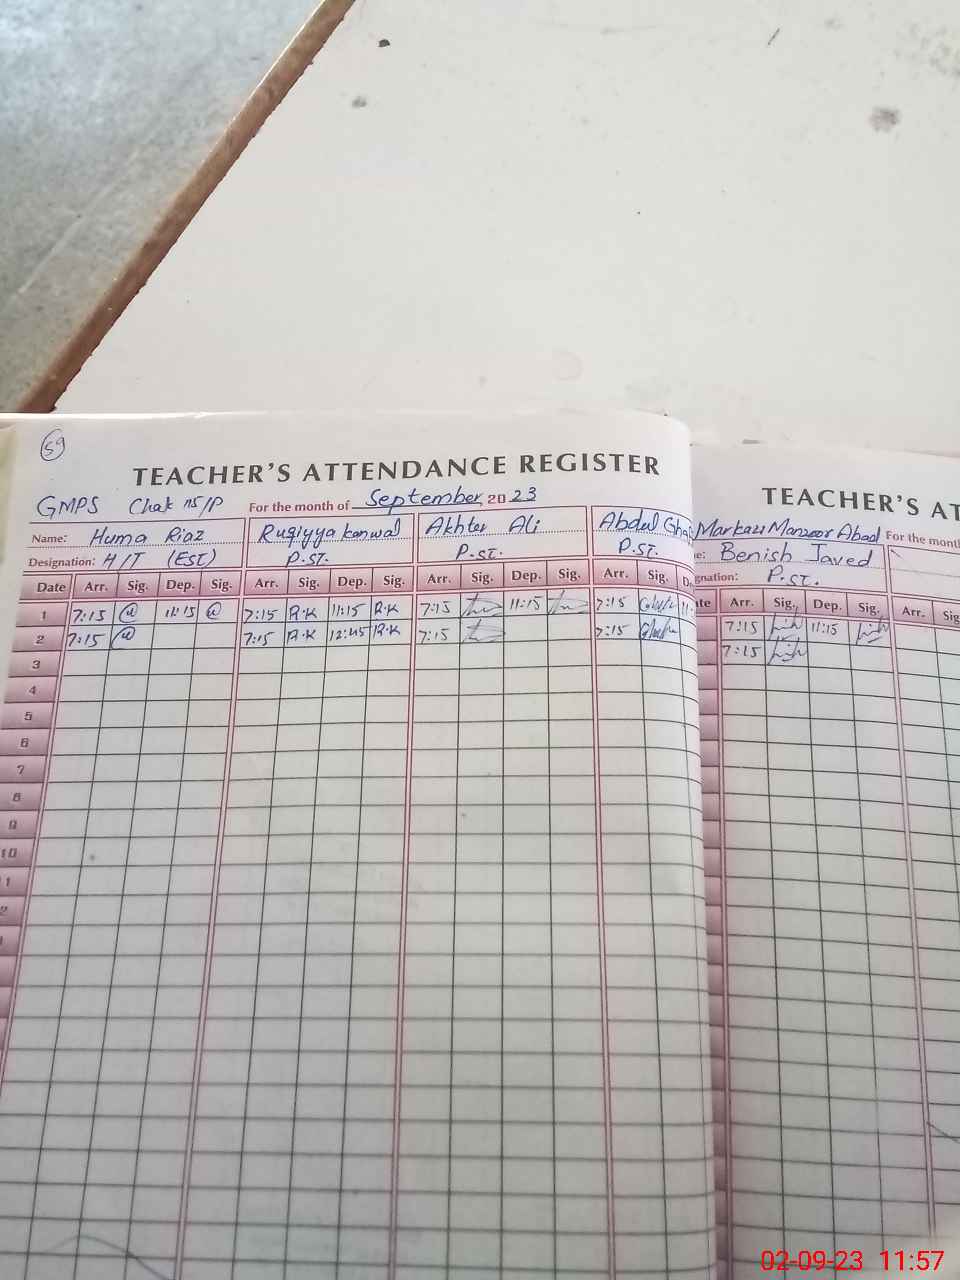 59
TEACHER'S ATTENDANCE REGISTER
GMPS Chak 115/P For the month of September 2023
Name: Huma Riaz Ruqiyya kanwal Akhter Ali Abdul
Designation: H/T (EST) P.ST. P.ST. P.ST.
Date Arr. Sig. Dep. Sig. Arr. Sig. Dep. Sig. Arr. Sig. Dep. Sig. Arr. Sig.
1 7:15 @ 11:15 @ 7:15 R.K 11:15 R.K 7:15 11:15 7:15
2 7:15 @ 7:15 R.K 12:45 R.K 7:15 7:15
3
4
5
6
7
8
9
10
TEACHER'S AT
Markaz Manzoor Abad For the month
Benish Javed
gnation: P.ST.
Arr. Sig. Dep. Sig. Arr. Sig
7:15 11:15
7:15
02-09-23 11:57